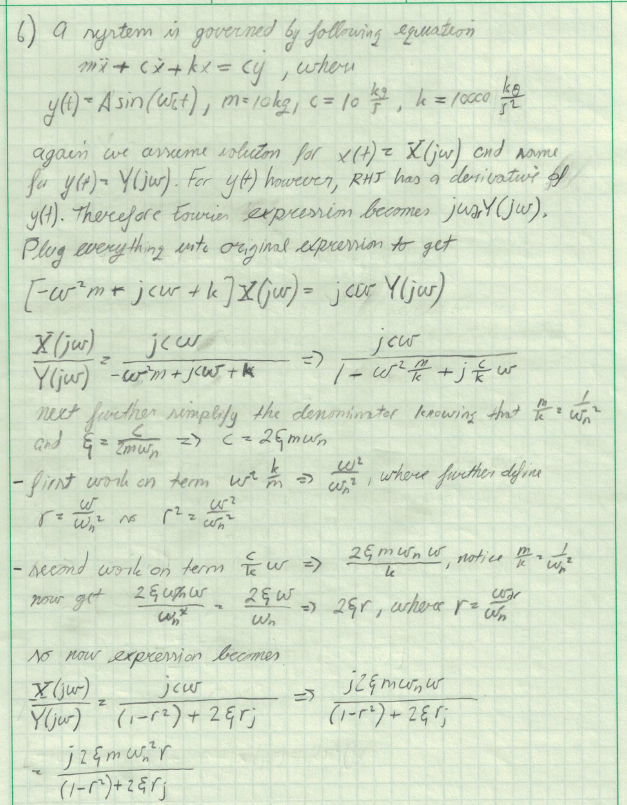 6) A system is governed by following equation
mẍ + cẋ + kx = cẏ , where
y(t) = A sin(ω₀t), m = 10 kg, c = 10 kg/s , k = 10000 kg/s²
again we assume soluton for x(t) = X(jω) and same
for y(t) = Y(jω). For y(t) however, RHS has a derivative of
y(t). Therefore Fourier expression becomes jωY(jω).
Plug everything into original expression to get
[-ω²m + jcω + k] X(jω) = jcω Y(jω)
X(jω)/Y(jω) = jcω/(-ω²m + jcω + k) => jcω/(1 - ω² m/k + j c/k ω)
next further simplify the denominator knowing that m/k = 1/ωn²
and ξ = c/2mωn => c = 2ξmωn
- first work on term ω² k/m => ω²/ωn², where further define
r = ω/ωn² so r² = ω²/ωn²
- second work on term c/k ω => 2ξmωnω/k, notice m/k = 1/ωn²
now get 2ξωnω/ωn² = 2ξω/ωn => 2ξr, where r = ω/ωn
so now expression becomes
X(jω)/Y(jω) = jcω/((1-r²) + 2ξrj) => j2ξmωnω/((1-r²) + 2ξrj)
= j2ξmωn²r/((1-r²)+2ξrj)